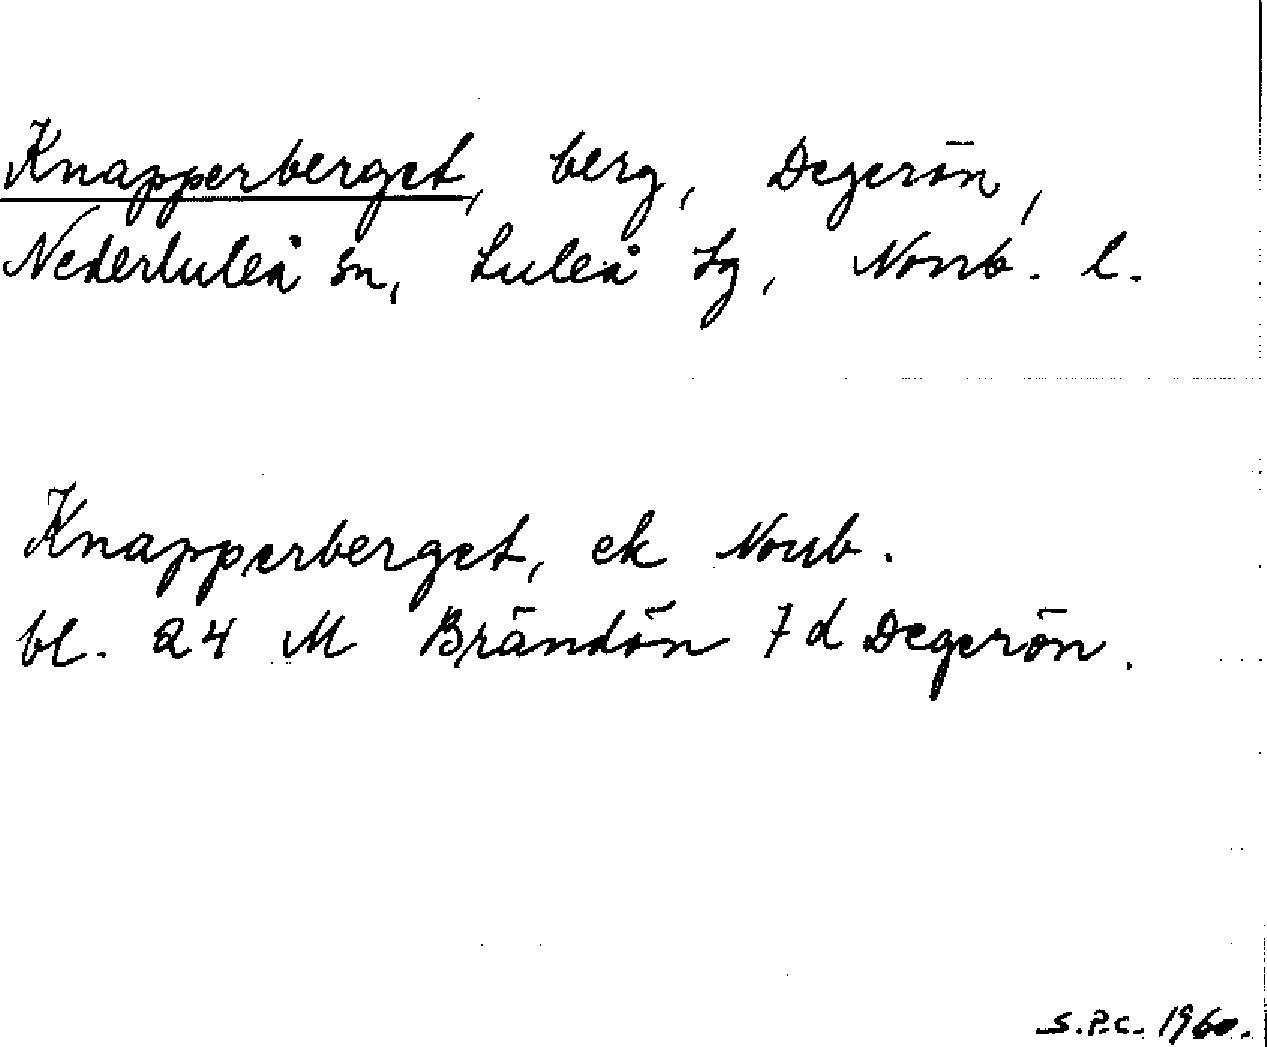 Knapperberget, berg, Degerön,
Nederluleå sn, Luleå tg, Norrb. l.
Knapperberget, ek Norrb.
bl. 24 M Brändön 7d Degerön.
S.P.C. 1960.